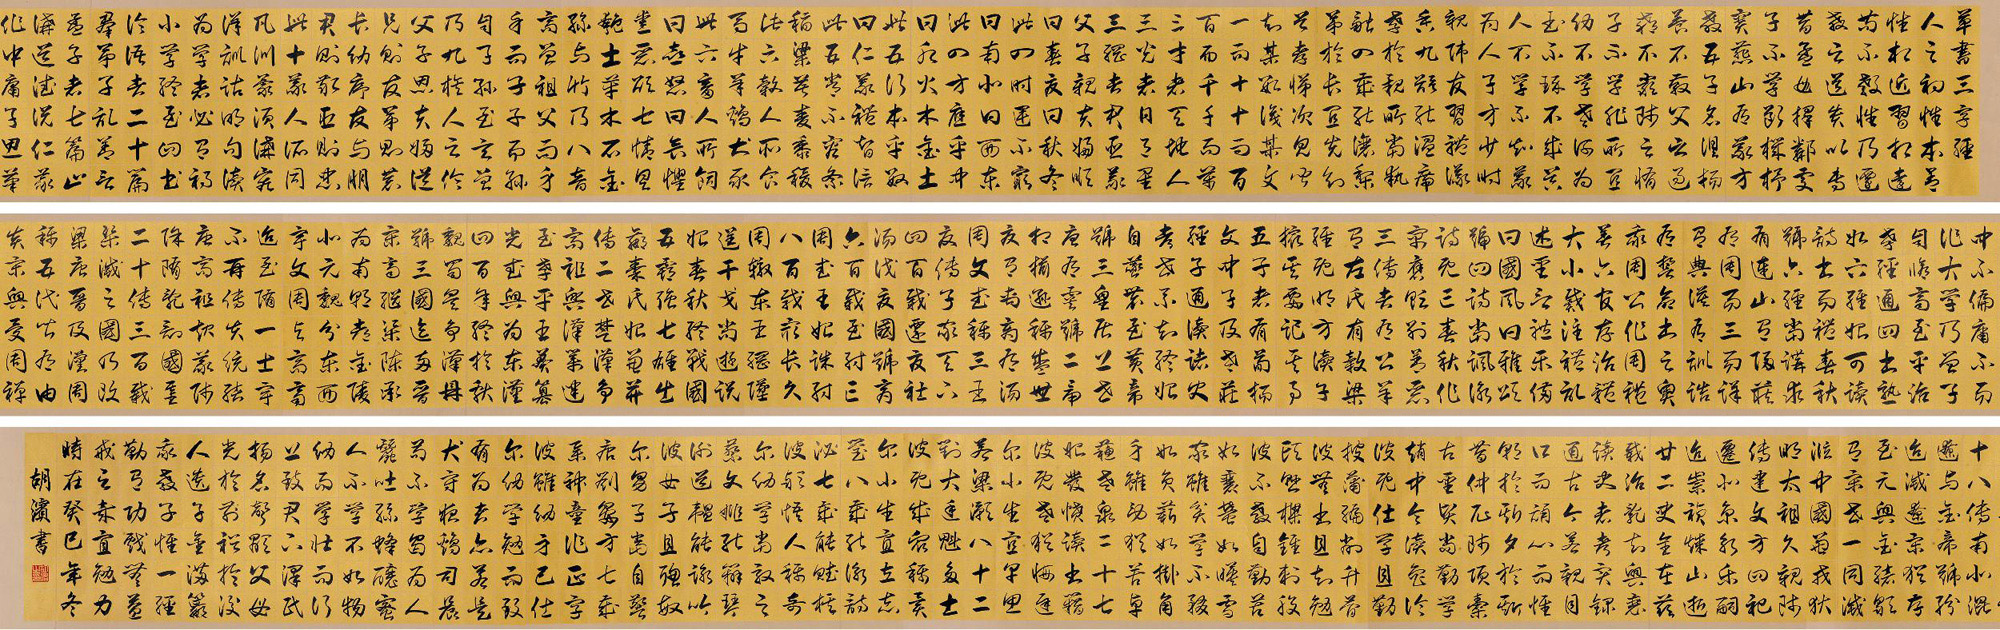 草書三字經
人之初性本善
性相近習相遠
苟不教性乃遷
教之道貴以專
昔孟母擇鄰處
子不學斷機杼
竇燕山有義方
教五子名俱揚
養不教父之過
教不嚴師之惰
子不學非所宜
幼不學老何為
玉不琢不成器
人不學不知義
為人子方少時
親師友習禮儀
香九齡能溫席
孝於親所當執
融四歲能讓梨
弟於長宜先知
首孝悌次見聞
知某數識某文
一而十十而百
百而千千而萬
三才者天地人
三光者日月星
三綱者君臣義
父子親夫婦順
曰春夏曰秋冬
此四時運不窮
曰南北曰西東
此四方應乎中
曰水火木金土
此五行本乎數
曰仁義禮智信
此五常不容紊
稻粱菽麥黍稷
此六穀人所食
馬牛羊雞犬豕
此六畜人所飼
曰喜怒曰哀懼
愛惡欲七情具
匏土革木石金
絲與竹乃八音
高曾祖父而身
身而子子而孫
自子孫至玄曾
乃九族人之倫
父子恩夫婦從
兄則友弟則恭
長幼序友與朋
君則敬臣則忠
此十義人所同
凡訓蒙須講究
詳訓詁明句讀
為學者必有初
小學終至四書
論語者二十篇
群弟子記善言
孟子者七篇止
講道德說仁義
作中庸子思筆
中不偏庸不易
作大學乃曾子
自修齊至平治
孝經通四書熟
如六經始可讀
詩書易禮春秋
號六經當講求
有連山有歸藏
有周易三易詳
有典謨有訓誥
有誓命書之奧
我周公作周禮
著六官存治體
大小戴注禮記
述聖言禮樂備
曰國風曰雅頌
號四詩當諷詠
詩既亡春秋作
寓褒貶別善惡
三傳者有公羊
有左氏有穀梁
經既明方讀子
撮其要記其事
五子者有荀楊
文中子及老莊
經子通讀諸史
考世系知終始
自羲農至黃帝
號三皇居上世
唐有虞號二帝
相揖遜稱盛世
夏有禹商有湯
周文武稱三王
夏傳子家天下
四百載遷夏社
湯伐夏國號商
六百載至紂亡
周武王始誅紂
八百載最長久
周轍東王綱墜
逞干戈尚遊說
始春秋終戰國
五霸強七雄出
嬴秦氏始兼併
傳二世楚漢爭
高祖興漢業建
至孝平王莽篡
光武興為東漢
四百年終於獻
魏蜀吳爭漢鼎
號三國迄兩晉
宋齊繼梁陳承
為南朝都金陵
北元魏分東西
宇文周與高齊
迨至隋一土宇
不再傳失統緒
唐高祖起義師
除隋亂創國基
二十傳三百載
梁滅之國乃改
梁唐晉及漢周
稱五代皆有由
炎宋興受周禪
十八傳南北混
遼與金帝號紛
迨滅遼宋猶存
至元興金緒歇
有宋世一同滅
蒞中國兼戎狄
明太祖久親師
傳建文方四祀
遷北京永樂嗣
迨崇禎煤山逝
廿二史全在茲
載治亂知興衰
讀史者考實錄
通古今若親目
口而誦心而惟
朝於斯夕於斯
昔仲尼師項橐
古聖賢尚勤學
趙中令讀魯論
彼既仕學且勤
披蒲編削竹簡
彼無書且知勉
頭懸梁錐刺股
彼不教自勤苦
如囊螢如映雪
家雖貧學不輟
如負薪如掛角
身雖勞猶苦卓
蘇老泉二十七
始發憤讀書籍
彼既老猶悔遲
爾小生宜早思
若梁灝八十二
對大廷魁多士
彼既成眾稱異
爾小生宜立志
瑩八歲能詠詩
泌七歲能賦棋
彼穎悟人稱奇
爾幼學當效之
蔡文姬能辨琴
謝道韞能詠吟
彼女子且聰敏
爾男子當自警
唐劉晏方七歲
舉神童作正字
彼雖幼身已仕
爾幼學勉而致
有為者亦若是
犬守夜雞司晨
苟不學曷為人
蠶吐絲蜂釀蜜
人不學不如物
幼而學壯而行
上致君下澤民
揚名聲顯父母
光於前裕於後
人遺子金滿籯
我教子惟一經
勤有功戲無益
戒之哉宜勉力
時在癸巳年冬
胡書